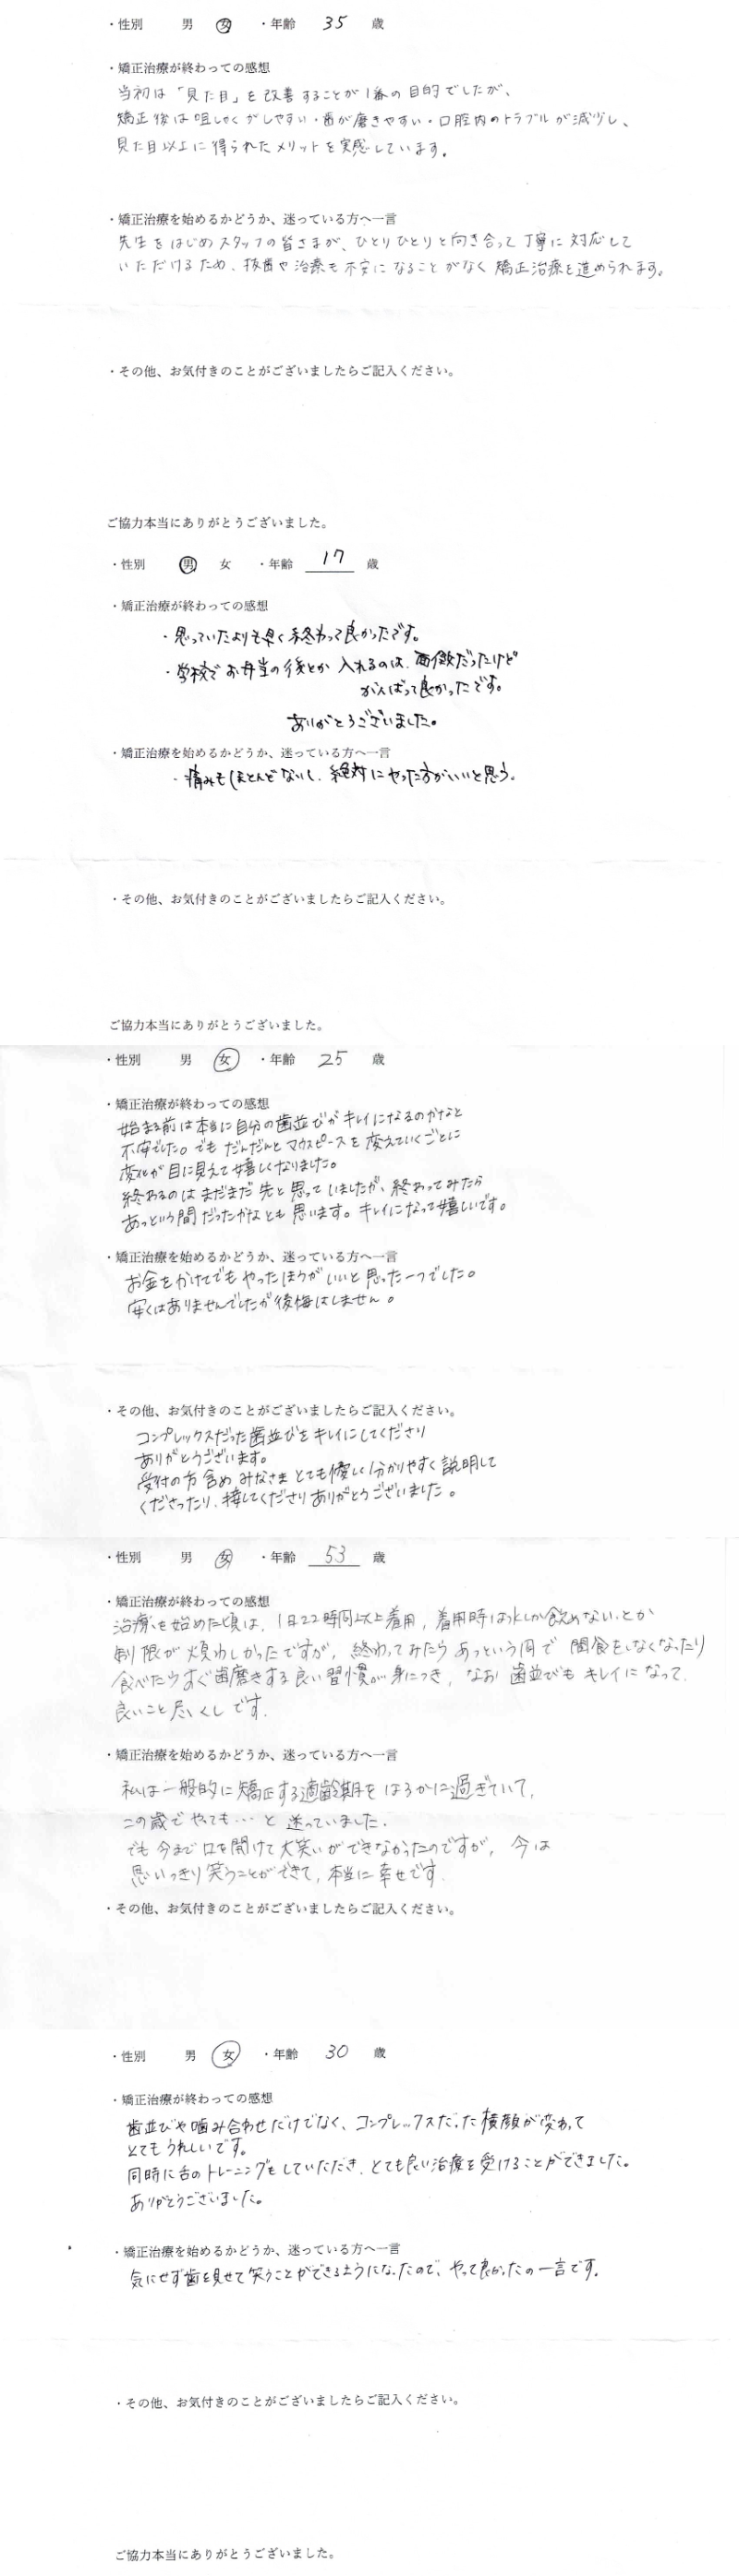 ・性別　男　女　・年齢　35　歳
・矯正治療が終わっての感想
当初は「見た目」を改善することが1番の目的でしたが、
矯正後は咀しゃくがしやすい・歯が磨きやすい・口腔内のトラブルが減少し、
見た目以上に得られたメリットを実感しています。
・矯正治療を始めるかどうか、迷っている方へ一言
先生をはじめスタッフの皆さまが、ひとりひとりと向き合って丁寧に対応して
いただけるため、抜歯や治療も不安になることがなく矯正治療を進められます。
・その他、お気付きのことがございましたらご記入ください。
ご協力本当にありがとうございました。
・性別　男　女　・年齢　17　歳
・矯正治療が終わっての感想
・思っていたよりも早く終わって良かったです。
・学校でお弁当の後とか入れるのは、面倒だったけど
がんばって良かったです。
ありがとうございました。
・矯正治療を始めるかどうか、迷っている方へ一言
・痛みもほとんどないし、絶対にやった方がいいと思う。
・その他、お気付きのことがございましたらご記入ください。
ご協力本当にありがとうございました。
・性別　男　女　・年齢　25　歳
・矯正治療が終わっての感想
始まる前は本当に自分の歯並びがキレイになるのかなと
不安でした。でもだんだんとマウスピースを変えていくごとに
変化が目に見えて嬉しくなりました。
終わるのはまだまだ先と思っていましたが、終わってみたら
あっという間だったかなとも思います。キレイになって嬉しいです。
・矯正治療を始めるかどうか、迷っている方へ一言
お金をかけてでもやったほうがいいと思った一つでした。
安くはありませんでしたが後悔はしません。
・その他、お気付きのことがございましたらご記入ください。
コンプレックスだった歯並びをキレイにしてくださり
ありがとうございます。
受付の方含めみなさまとても優しく分かりやすく説明して
くださったり、接してくださりありがとうございました。
・性別　男　女　・年齢　53　歳
・矯正治療が終わっての感想
治療を始めた頃は、1日22時間以上着用、着用時は水しか飲めないとか
制限が煩わしかったですが、終わってみたらあっという間で間食をしなくなったり
食べたらすぐ歯磨きする良い習慣が身につき、なお歯並びもキレイになって
良いこと尽くしです。
・矯正治療を始めるかどうか、迷っている方へ一言
私は一般的に矯正する適齢期をはるかに過ぎていて、
この歳でやっても…と迷っていました。
でも今まで口を開けて大笑いができなかったのですが、今は
思いっきり笑うことができて、本当に幸せです。
・その他、お気付きのことがございましたらご記入ください。
・性別　男　女　・年齢　30　歳
・矯正治療が終わっての感想
歯並びや噛み合わせだけでなく、コンプレックスだった横顔が変わって
とてもうれしいです。
同時に舌のトレーニングもしていただき、とても良い治療を受けることができました。
ありがとうございました。
・矯正治療を始めるかどうか、迷っている方へ一言
気にせず歯を見せて笑うことができるようになったので、やって良かったの一言です。
・その他、お気付きのことがございましたらご記入ください。
ご協力本当にありがとうございました。